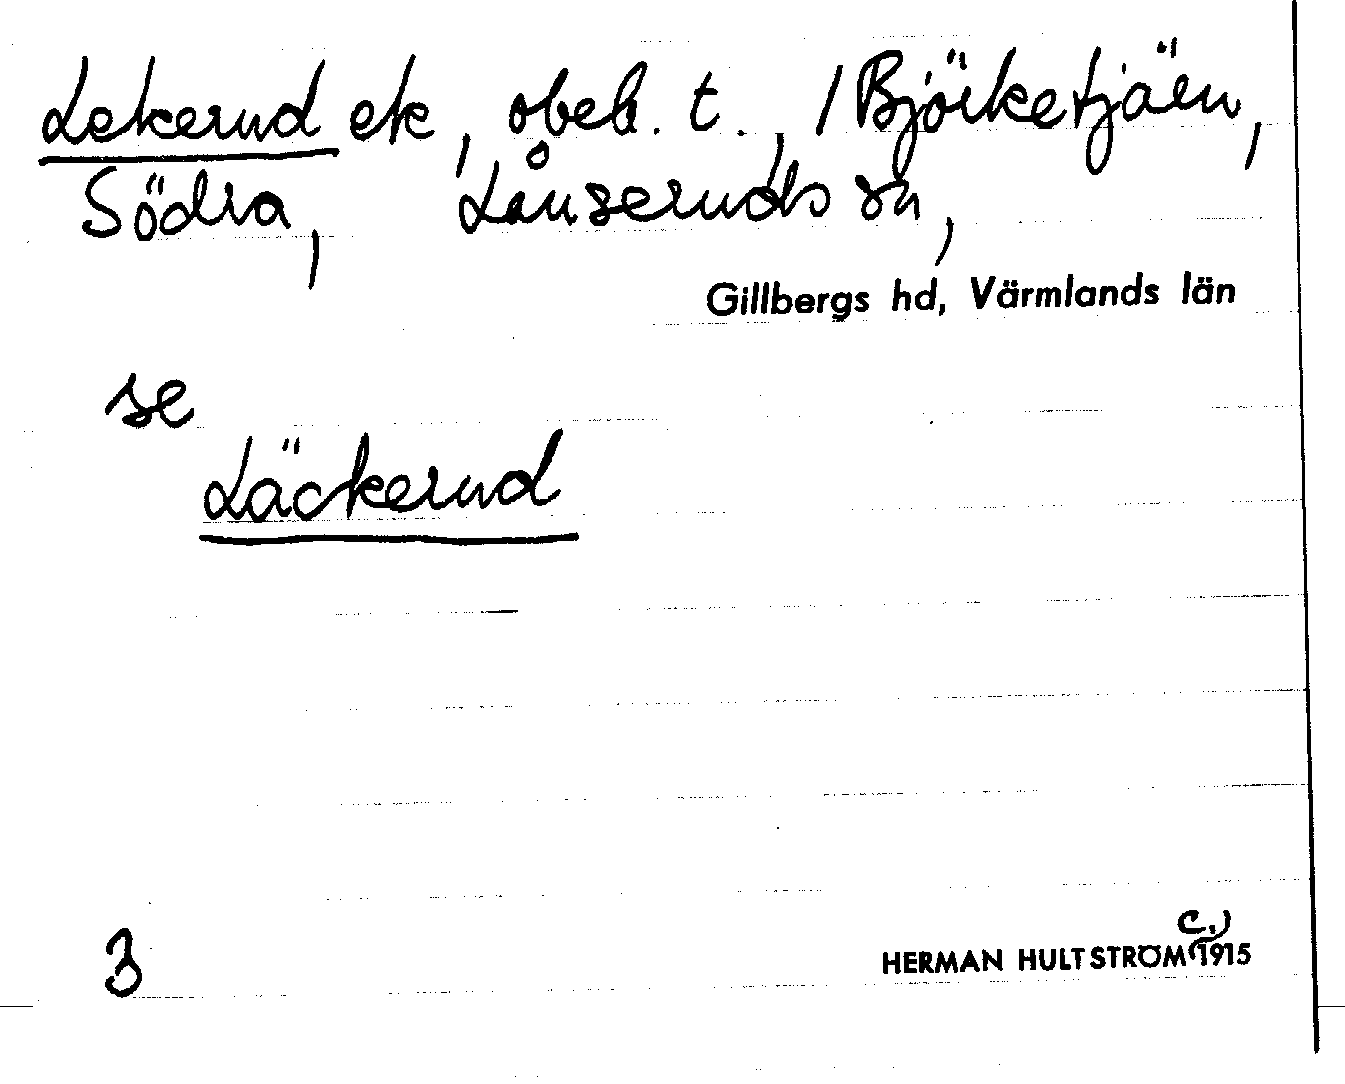 Lekerud etc, obeb. t., / Björketjärn,
Södra, Långseruds sn,
Gillbergs hd, Värmlands län
se
Läckerud
3
c.)
HERMAN HULTSTRÖM 1915